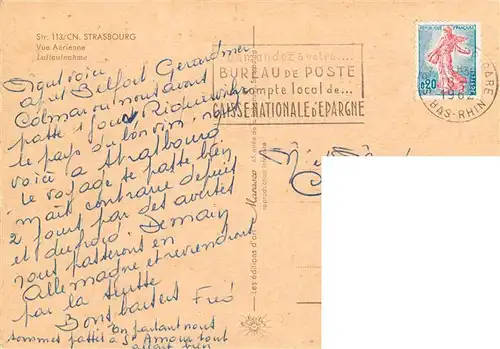 Str. 113/CN. STRASBOURG
Vue Aérienne
Luftaufnahme
Demandez à votre....
BUREAU DE POSTE
compte local de...
CAISSE NATIONALE D'ÉPARGNE
REPUBLIQUE FRANÇAISE
0,20
POSTES
GARE
1962
BAS-RHIN
Nous voici
après Belfort Gerardmer
Colmar où nous avons
passé 1 jour Riquewihr
le pays du bon vin, nous
voici à Strasbourg
Le voyage se passe bien
mais contrarié depuis
2 jours par des averses
et du froid. Demain
nous passerons en
Allemagne et reviendrons
par la suite
Bons baisers Fred
en partant nous
sommes passés à St Amour tout
allait bien
Les éditions d'art
reproduction interdite